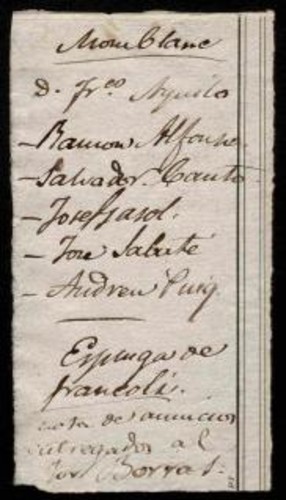 Momblanc
D. Fr.co Aguiló
- Ramon Alfonso.
- Salvador Cantó
- Jose Gasol.
- Jose Sabaté
- Andreu Puig.
Espluga de
francolí.
nota de anuncios
entregados al
Sor Borras.